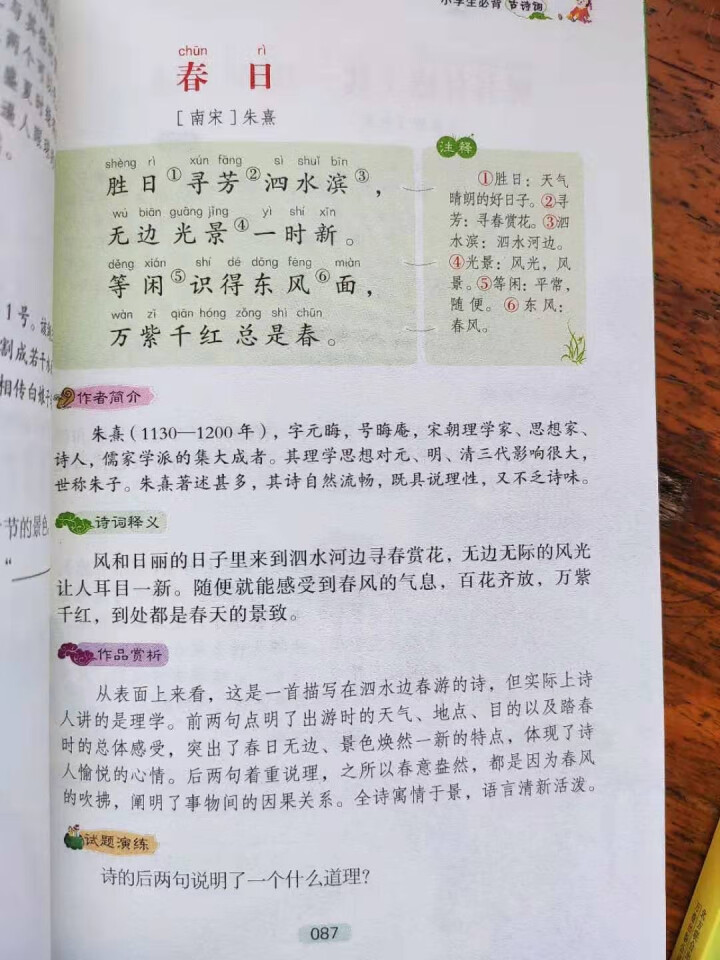 小学生必背古诗词
chūn rì
春日
[南宋]朱熹
shèng rì xún fāng sì shuǐ bīn
胜日①寻芳②泗水滨③，
wú biān guāng jǐng yì shí xīn
无边光景④一时新。
děng xián shí dé dōng fēng miàn
等闲⑤识得东风⑥面，
wàn zǐ qiān hóng zǒng shì chūn
万紫千红总是春。
注释
①胜日：天气
晴朗的好日子。②寻
芳：寻春赏花。③泗
水滨：泗水河边。
④光景：风光，风
景。⑤等闲：平常，
随便。⑥东风：
春风。
作者简介
朱熹（1130—1200年），字元晦，号晦庵，宋朝理学家、思想家、
诗人，儒家学派的集大成者。其理学思想对元、明、清三代影响很大，
世称朱子。朱熹著述甚多，其诗自然流畅，既具说理性，又不乏诗味。
诗词释义
风和日丽的日子里来到泗水河边寻春赏花，无边无际的风光
让人耳目一新。随便就能感受到春风的气息，百花齐放，万紫
千红，到处都是春天的景致。
作品赏析
从表面上来看，这是一首描写在泗水边春游的诗，但实际上诗
人讲的是理学。前两句点明了出游时的天气、地点、目的以及踏春
时的总体感受，突出了春日无边、景色焕然一新的特点，体现了诗
人愉悦的心情。后两句着重说理，之所以春意盎然，都是因为春风
的吹拂，阐明了事物间的因果关系。全诗寓情于景，语言清新活泼。
试题演练
诗的后两句说明了一个什么道理？
087
1号。
割成若干
相传白娘子
节的景色